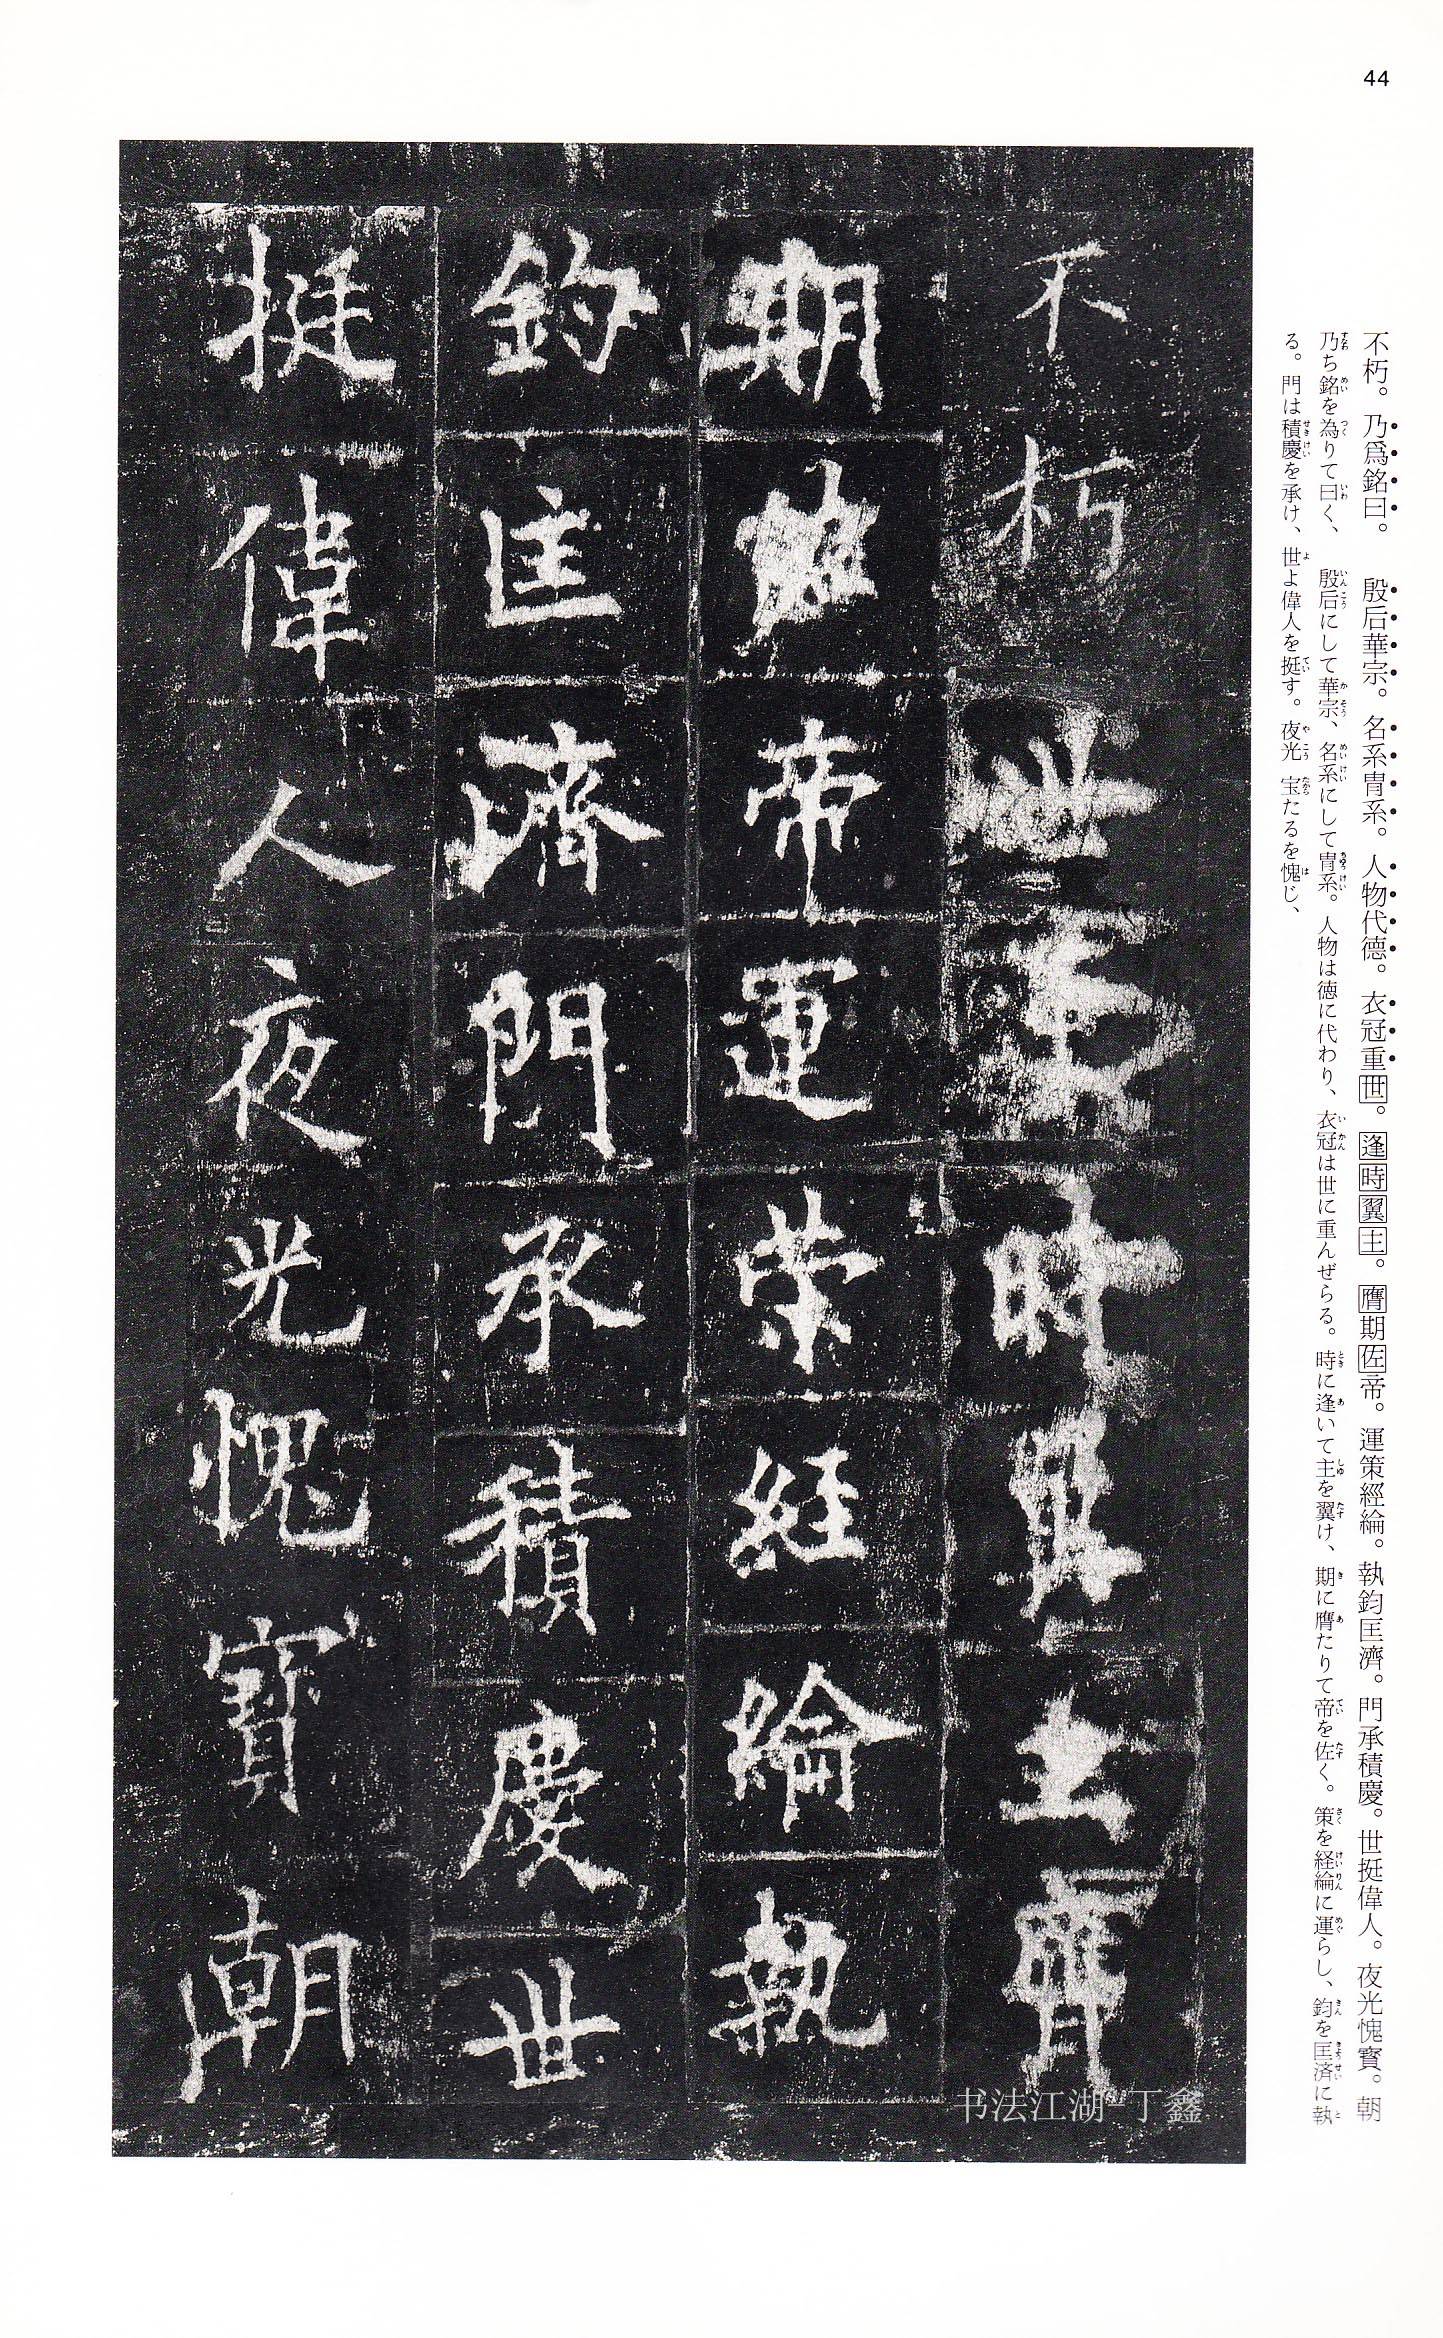 44
不朽。乃爲銘曰。 殷后華宗。名系冑系。人物代德。衣冠重世。逢時翼主。膺期佐帝。運策經綸。執鈞匡濟。門承積慶。世挺偉人。夜光愧寶。朝
乃ち銘を為りて曰く、 殷后にして華宗、名系にして冑系。人物は徳に代わり、衣冠は世に重んぜらる。時に逢いて主を翼け、期に膺たりて帝を佐く。策を経綸に運らし、鈞を匡済に執
る。門は積慶を承け、世よ偉人を挺す。夜光 宝たるを愧じ、
不朽世逢時翼主膺
期佐帝運策經綸執
鈞匡濟門承積慶世
挺偉人夜光愧寶朝
书法江湖-丁鑫